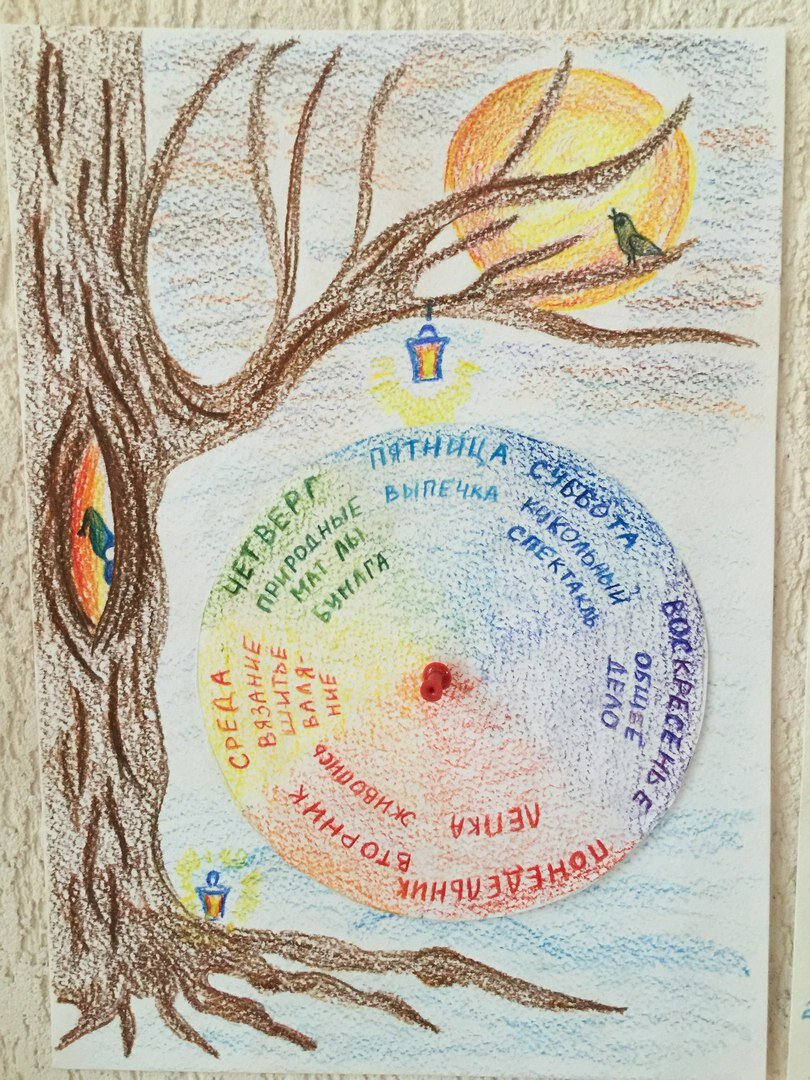 ПОНЕДЕЛЬНИК
ЛЕПКА
ВТОРНИК
ЖИВОПИСЬ
СРЕДА
ВЯЗАНИЕ
ШИТЬЕ
ВАЛЯ-
НИЕ
ЧЕТВЕРГ
ПРИРОДНЫЕ
МАТ ЛЫ
БУМАГА
ПЯТНИЦА
ВЫПЕЧКА
СУББОТА
КУКОЛЬНЫЙ
СПЕКТАКЛЬ
ВОСКРЕСЕНЬЕ
ОБЩЕЕ
ДЕЛО